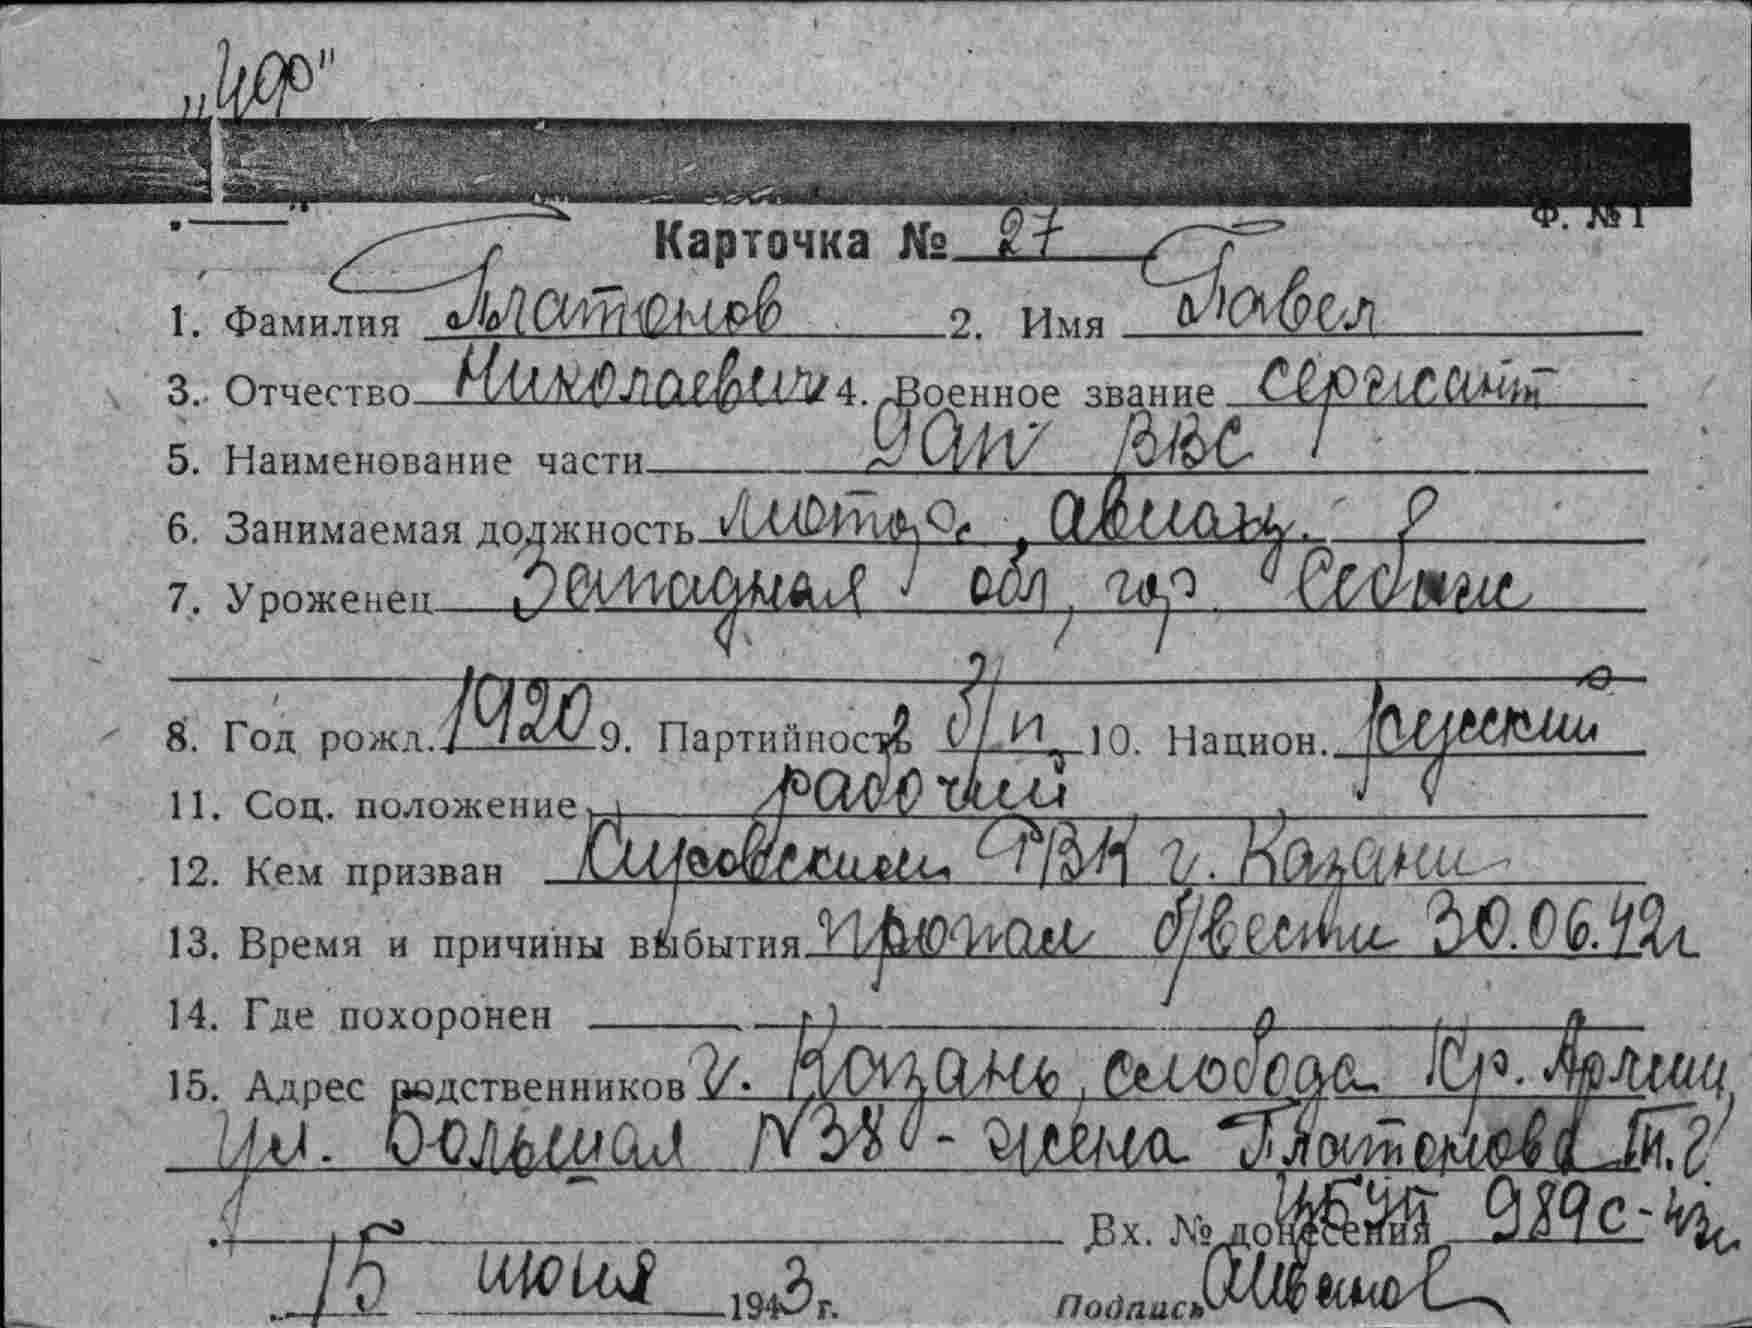 Ф. № 1
Карточка № 27
1. Фамилия Платонов 2. Имя Павел
3. Отчество Николаевич 4. Военное звание сержант
5. Наименование части ВВС
6. Занимаемая должность
7. Уроженец Западная обл, гор Себеж
8. Год рожд. 1920 9. Партийность б/п 10. Национ. русский
11. Соц. положение рабочий
12. Кем призван Кировским РВК г. Казани
13. Время и причины выбытия пропал б/вести 30.06.42г
14. Где похоронен
15. Адрес родственников г. Казань, слобода Кр. Армии,
ул. Большая N38 - жена Платонова
Вх. № донесения 989с-43г
15 июня 1943 г. Подпись